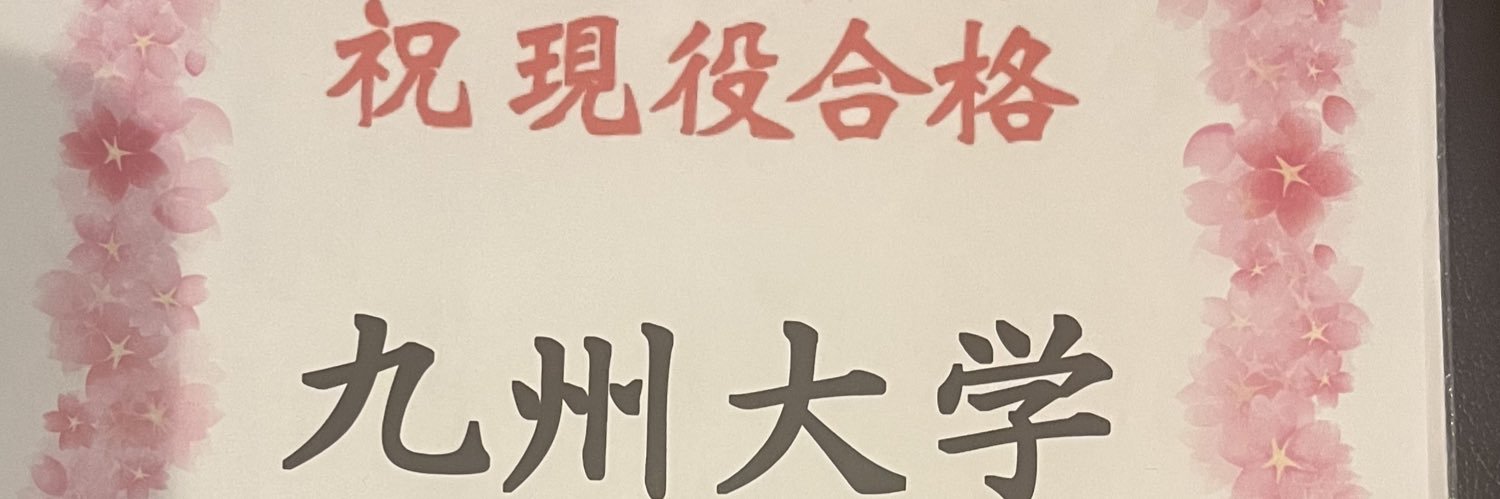 祝 現役合格
九州大学